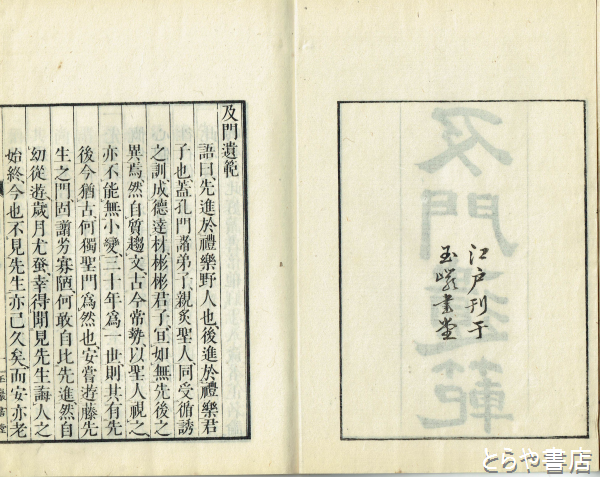 江戶刊于
玉巖書堂
及門遺範
語曰、先進於禮樂野人也、後進於禮樂君
子也、蓋孔門諸弟子、親炙聖人、同受循誘
之訓、成德達材、彬彬君子、宜如無先後之
異焉、然自質趨文、古今常勢、以聖人視之
亦不能無小變、三十年爲一世、則其有先
後、今猶古、何獨聖門爲然也、安嘗遊藤先
生之門、固謭劣寡陋、何敢自比先進、然自
幼從遊、歲月尤蚤、幸得聞見先生誨人之
始終、今也不見先生亦已久矣、而安亦老
とらや書店